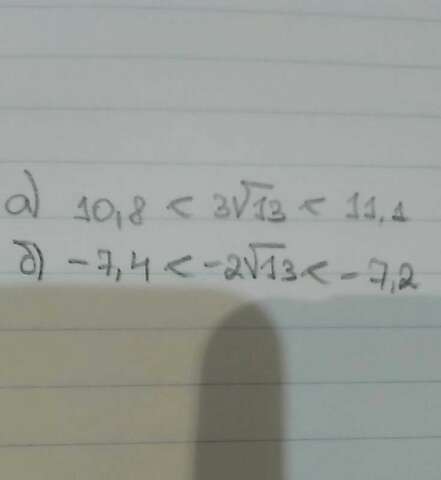 а) 10,8 < 3√13 < 11,1
б) -7,4 < -2√13 < -7,2